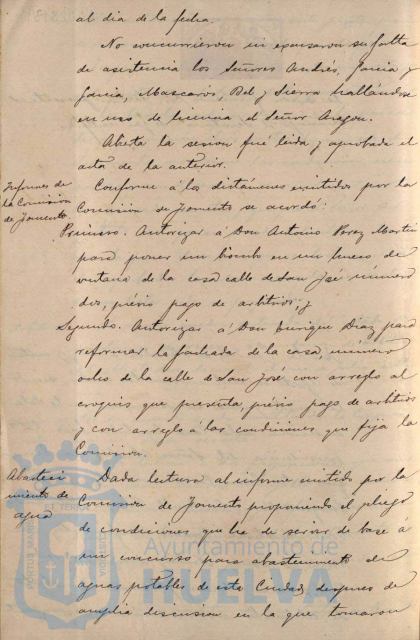 al dia de la fecha.
No concurrieron ni excusaron su falta
de asistencia los Señores Andrés, Garcia y
Garcia, Mascaros, Bel y Sierra hallandose
en uso de licencia el Señor Aragon.
Abierta la sesion fué leida y aprobada el
acta de la anterior.
Informes de
la Comision
de Fomento.
Conforme á los dictámenes emitidos por la
Comision de Fomento se acordó:
Primero. Autorizar á Don Antonio Perez Martin
para poner un biombo en un hueco de
ventana de la casa calle de San José número
dos, prévio pago de arbitrios; y
Segundo. Autorizar á Don Enrique Diaz para
reformar la fachada de la casa, número
ocho de la calle de San José con arreglo al
croquis que presenta, prévio pago de arbitrios
y con arreglo á las condiciones que fija la
Comision.
Abasteci
miento de
agua
Dada lectura al informe emitido por la
Comision de Fomento proponiendo el pliego
de condiciones que ha de servir de base á
un concurso para abastecimiento de
aguas potables de esta Ciudad, despues de
amplia discusion en la que tomaron
Ayuntamiento de
HUELVA